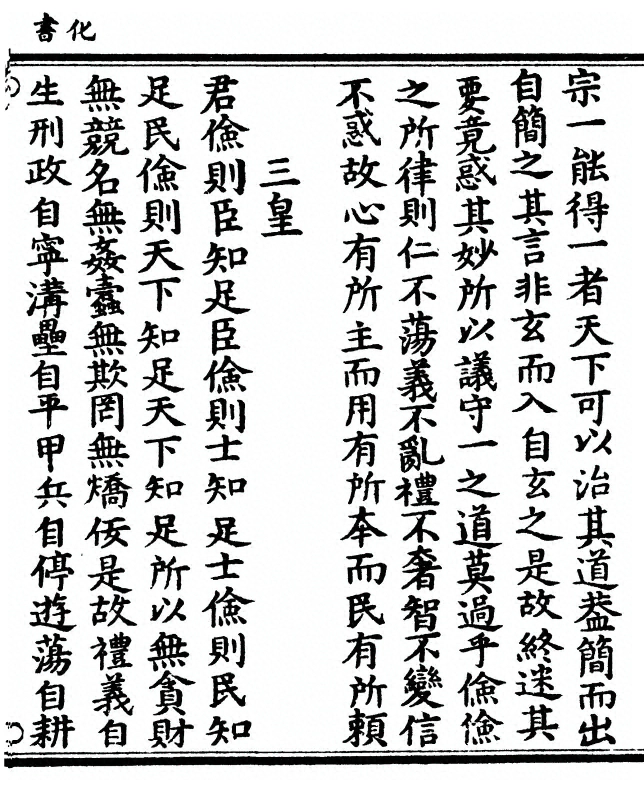 化書
宗一能得一者天下可以治其道葢簡而出
自簡之其言非玄而入自玄之是故終迷其
要竟惑其妙所以議守一之道莫過乎儉儉
之所律則仁不蕩義不亂禮不奢智不變信
不惑故心有所主而用有所本而民有所賴
三皇
君儉則臣知足臣儉則士知足士儉則民知
足民儉則天下知足天下知足所以無貪財
無競名無姦蠹無欺罔無矯佞是故禮義自
生刑政自寧溝壘自平甲兵自停遊蕩自耕